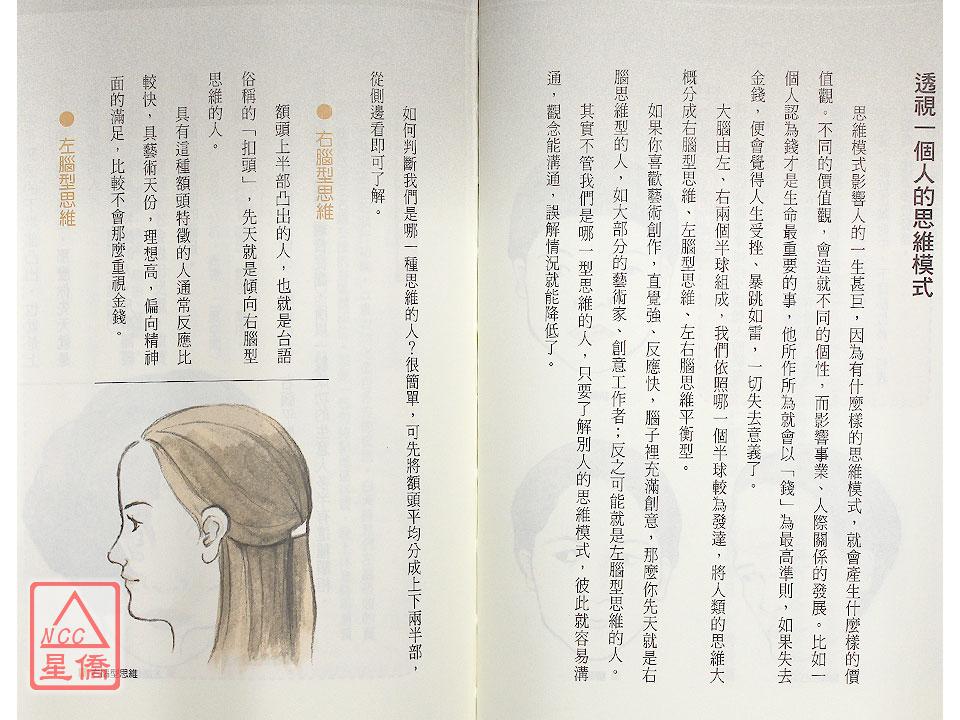 透視一個人的思維模式
思維模式影響人的一生甚巨，因為有什麼樣的思維模式，就會產生什麼樣的價
值觀。不同的價值觀，會造就不同的個性，而影響事業、人際關係的發展。比如一
個人認為錢才是生命最重要的事，他所作所為就會以「錢」為最高準則，如果失去
金錢，便會覺得人生受挫、暴跳如雷，一切失去意義了。
大腦由左、右兩個半球組成，我們依照哪一個半球較為發達，將人類的思維大
概分成右腦型思維、左腦型思維、左右腦思維平衡型。
如果你喜歡藝術創作，直覺強、反應快，腦子裡充滿創意，那麼你先天就是右
腦思維型的人，如大部分的藝術家、創意工作者；反之可能就是左腦型思維的人。
其實不管我們是哪一型思維的人，只要了解別人的思維模式，彼此就容易溝
通，觀念能溝通，誤解情況就能降低了。
如何判斷我們是哪一種思維的人？很簡單，可先將額頭平均分成上下兩半部，
從側邊看即可了解。
● 右腦型思維
額頭上半部凸出的人，也就是台語
俗稱的「扣頭」，先天就是傾向右腦型
思維的人。
具有這種額頭特徵的人通常反應比
較快，具藝術天份，理想高，偏向精神
面的滿足，比較不會那麼重視金錢。
● 左腦型思維
型思維
NCC
星僑